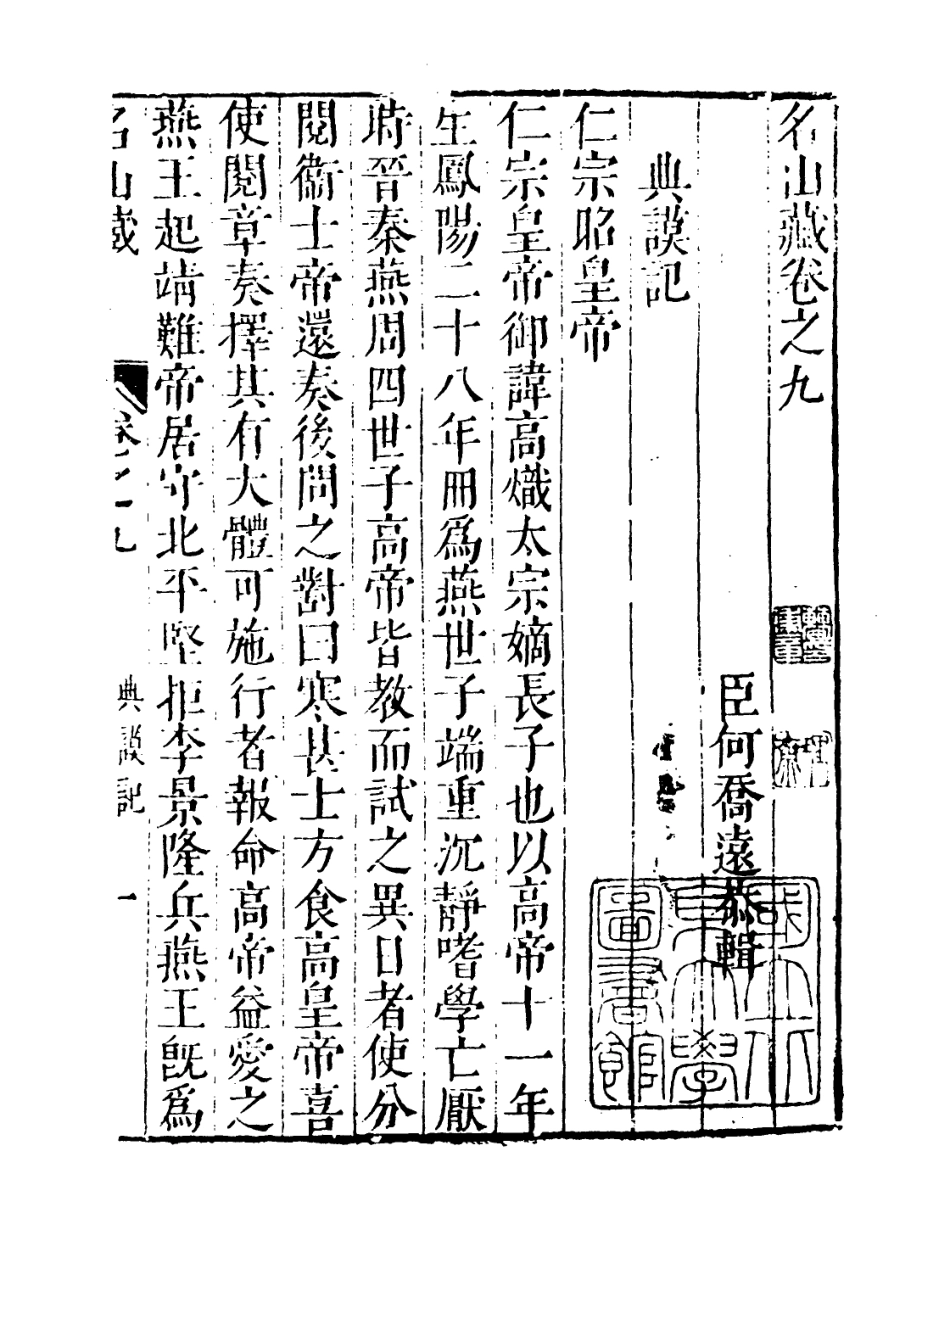 名山藏卷之九
臣何喬遠恭輯
典謨記
仁宗昭皇帝
仁宗皇帝御諱高熾太宗嫡長子也以高帝十一年
生鳳陽二十八年冊爲燕世子端重沉靜嗜學亡厭
時晉秦燕周四世子高帝皆教而試之異日者使分
閱衞士帝還奏後問之對曰寒甚士方食高皇帝喜
使閱章奏擇其有大體可施行者報命高帝益愛之
燕王起靖難帝居守北平堅拒李景隆兵燕王旣爲
名山藏
卷之九
典謨記
一
國立北平大學圖書館